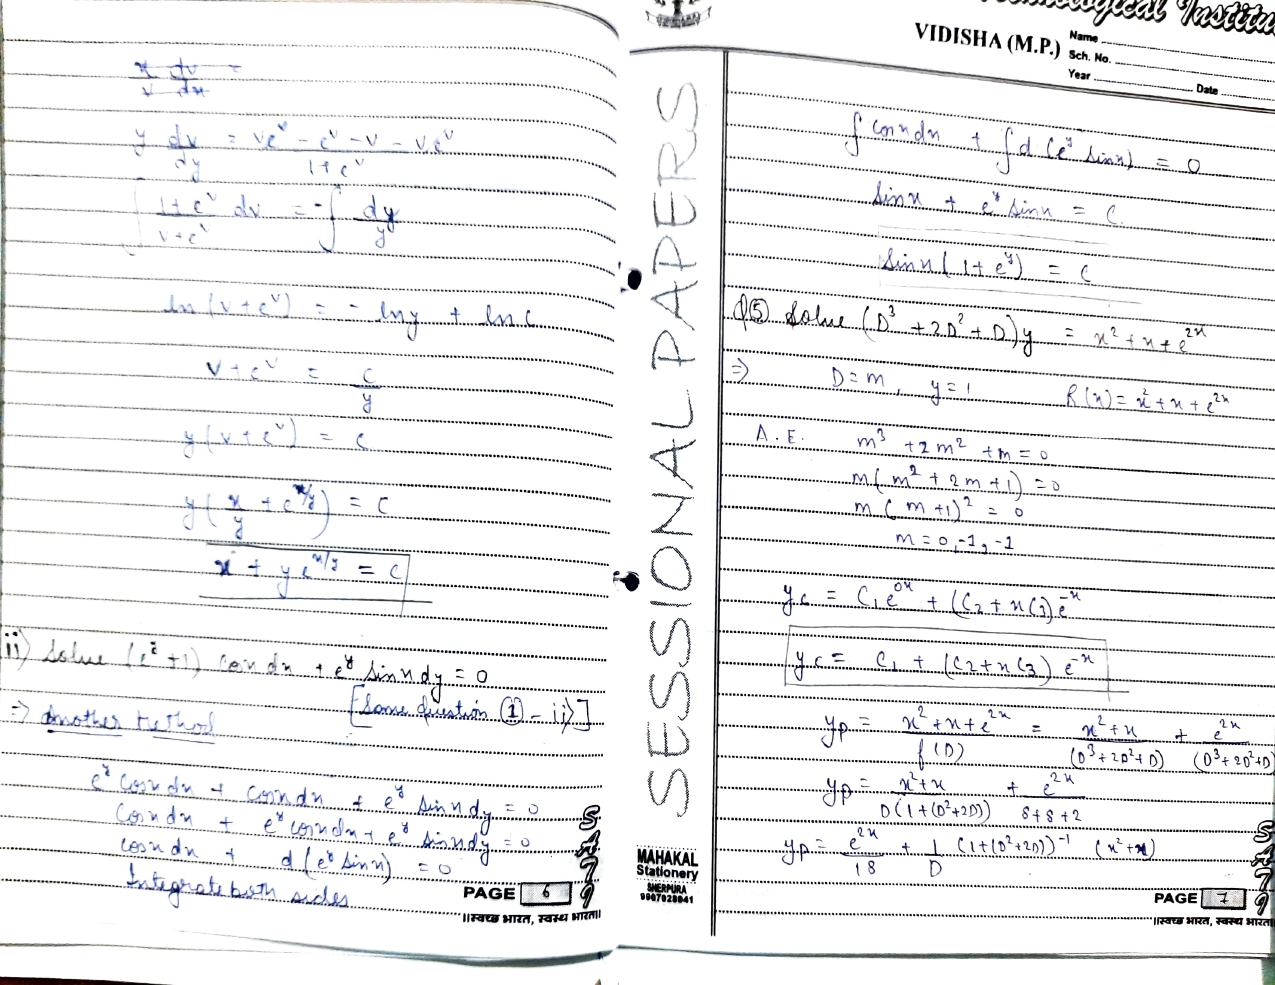 x/v dv/dx =
y dv/dy = ve^v - e^v - v - ve^v / 1+e^v
∫ 1+e^v / v+e^v dv = -∫ dy/y
ln (v+e^v) = - lny + lnc
v+e^v = c/y
y(v+e^v) = c
y(x/y + e^x/y) = c
x + y e^x/y = c
ii) Solve (e^y+1) cosxdx + e^y sinxdy = 0
[Same question ① - ii)]
⇒ Another method
e^y cosxdx + cosxdx + e^y sinxdy = 0
cosxdx + e^y cosxdx + e^y sinxdy = 0
cosxdx + d(e^y sinx) = 0
Integrate both sides
PAGE 6
॥स्वच्छ भारत, स्वस्थ भारत॥
SATI
SESSIONAL PAPERS
MAHAKAL
Stationery
SHERPURA
VIDISHA (M.P.)
Name
Sch. No.
Year
Date
∫cosxdx + ∫d(e^y sinx) = 0
sinx + e^y sinx = C.
sinx(1+e^y) = c
Q⑤ Solve (D³+2D²+D)y = x²+x+e^2x
⇒ D=m, y=1 R(x)=x²+x+e^2x
A.E. m³+2m²+m=0
m(m²+2m+1)=0
m(m+1)²=0
m=0,-1,-1
yc = C₁e^0x + (C₂+xC₃)e^-x
yc = C₁ + (C₂+xC₃)e^-x
yp = x²+x+e^2x / f(D) = x²+x / (D³+2D²+D) + e^2x / (D³+2D²+D)
yp = x²+x / D(1+(D²+2D)) + e^2x / 8+8+2
yp = e^2x / 18 + 1/D (1+(D²+2D))^-1 (x²+x)
PAGE 7
॥स्वच्छ भारत, स्वस्थ भारत॥